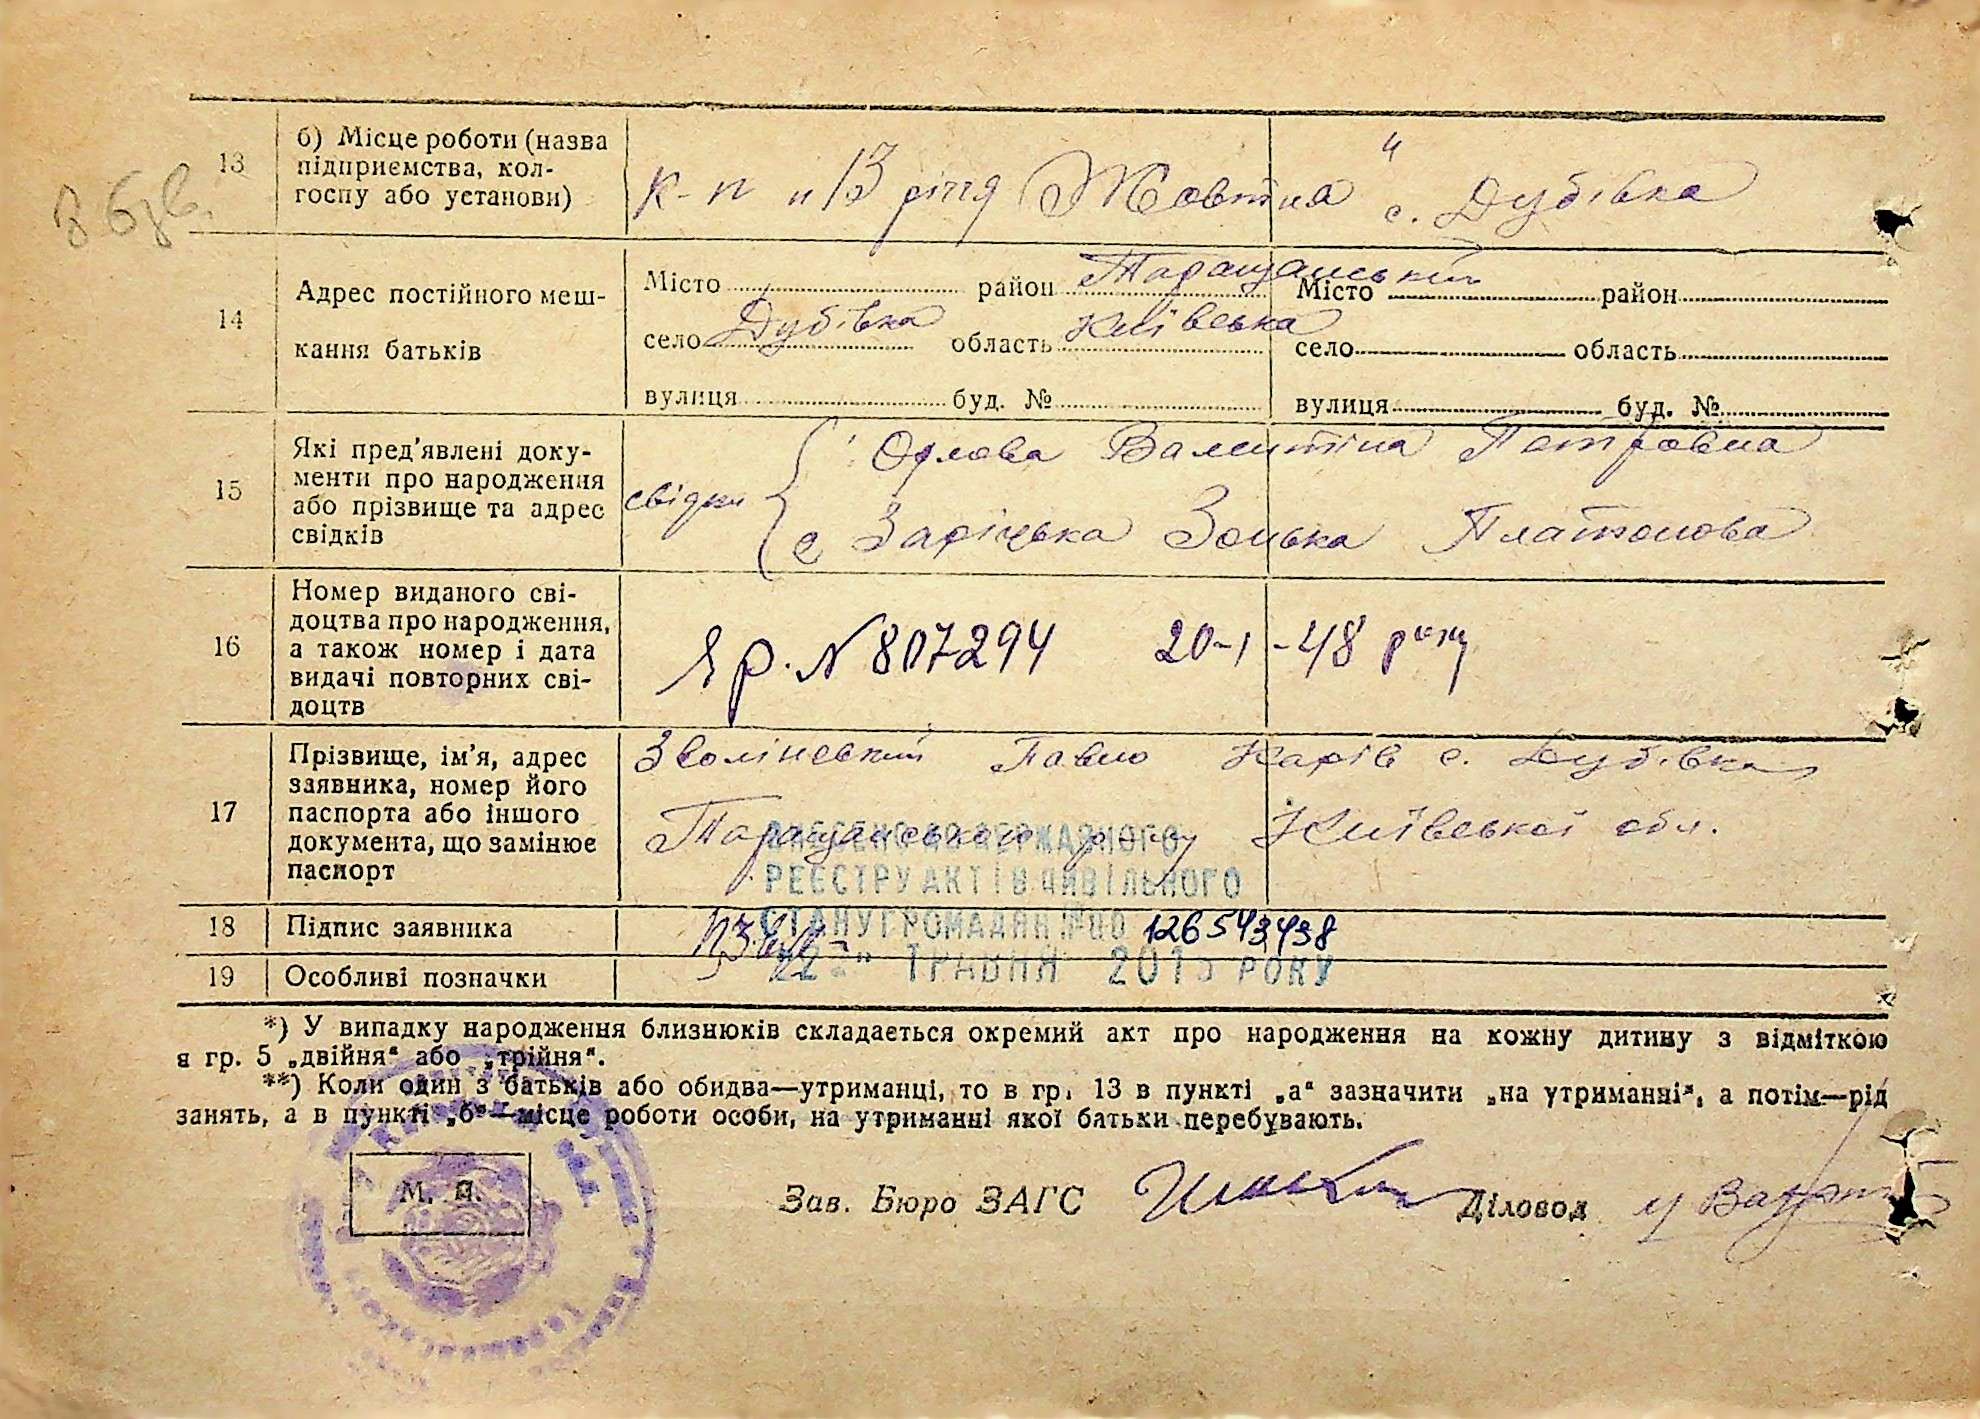 13 б) Місце роботи (назва
підприємства, кол-
госпу або установи)
к-п „13 річчя Жовтня“ с. Дубівка
14 Адрес постійного меш-
кання батьків
Місто район Таращанський Місто район
село Дубівка область Київська село область
вулиця буд. № вулиця буд. №
15 Які пред'явлені доку-
менти про народження
або прізвище та адрес
свідків
свідки Орлова Валентіна Петровна
Заріцька Зонька Платонова
16 Номер виданого сві-
доцтва про народження,
а також номер і дата
видачі повторних сві-
доцтв
ЯР. № 807294 20-1-48 року
17 Прізвище, ім'я, адрес
заявника, номер його
паспорта або іншого
документа, що замінює
паспорт
Зволінський Павло Карів с. Дубівка
Таращанського р-ну Київської обл.
ВНЕСЕНО ДО ДЕРЖАВНОГО
РЕЄСТРУ АКТІВ ЦИВІЛЬНОГО
18 Підпис заявника
СТАНУ ГРОМАДЯН №00 126543438
22 ТРАВНЯ 2015 РОКУ
19 Особливі позначки
*) У випадку народження близнюків складається окремий акт про народження на кожну дитину з відміткою
в гр. 5 „двійня“ або „трійня“.
**) Коли один з батьків або обидва—утриманці, то в гр. 13 в пункті „а“ зазначити „на утриманні“, а потім—рід
занять, а в пункті „б“—місце роботи особи, на утриманні якої батьки перебувають.
М. П.
Зав. Бюро ЗАГС Діловод